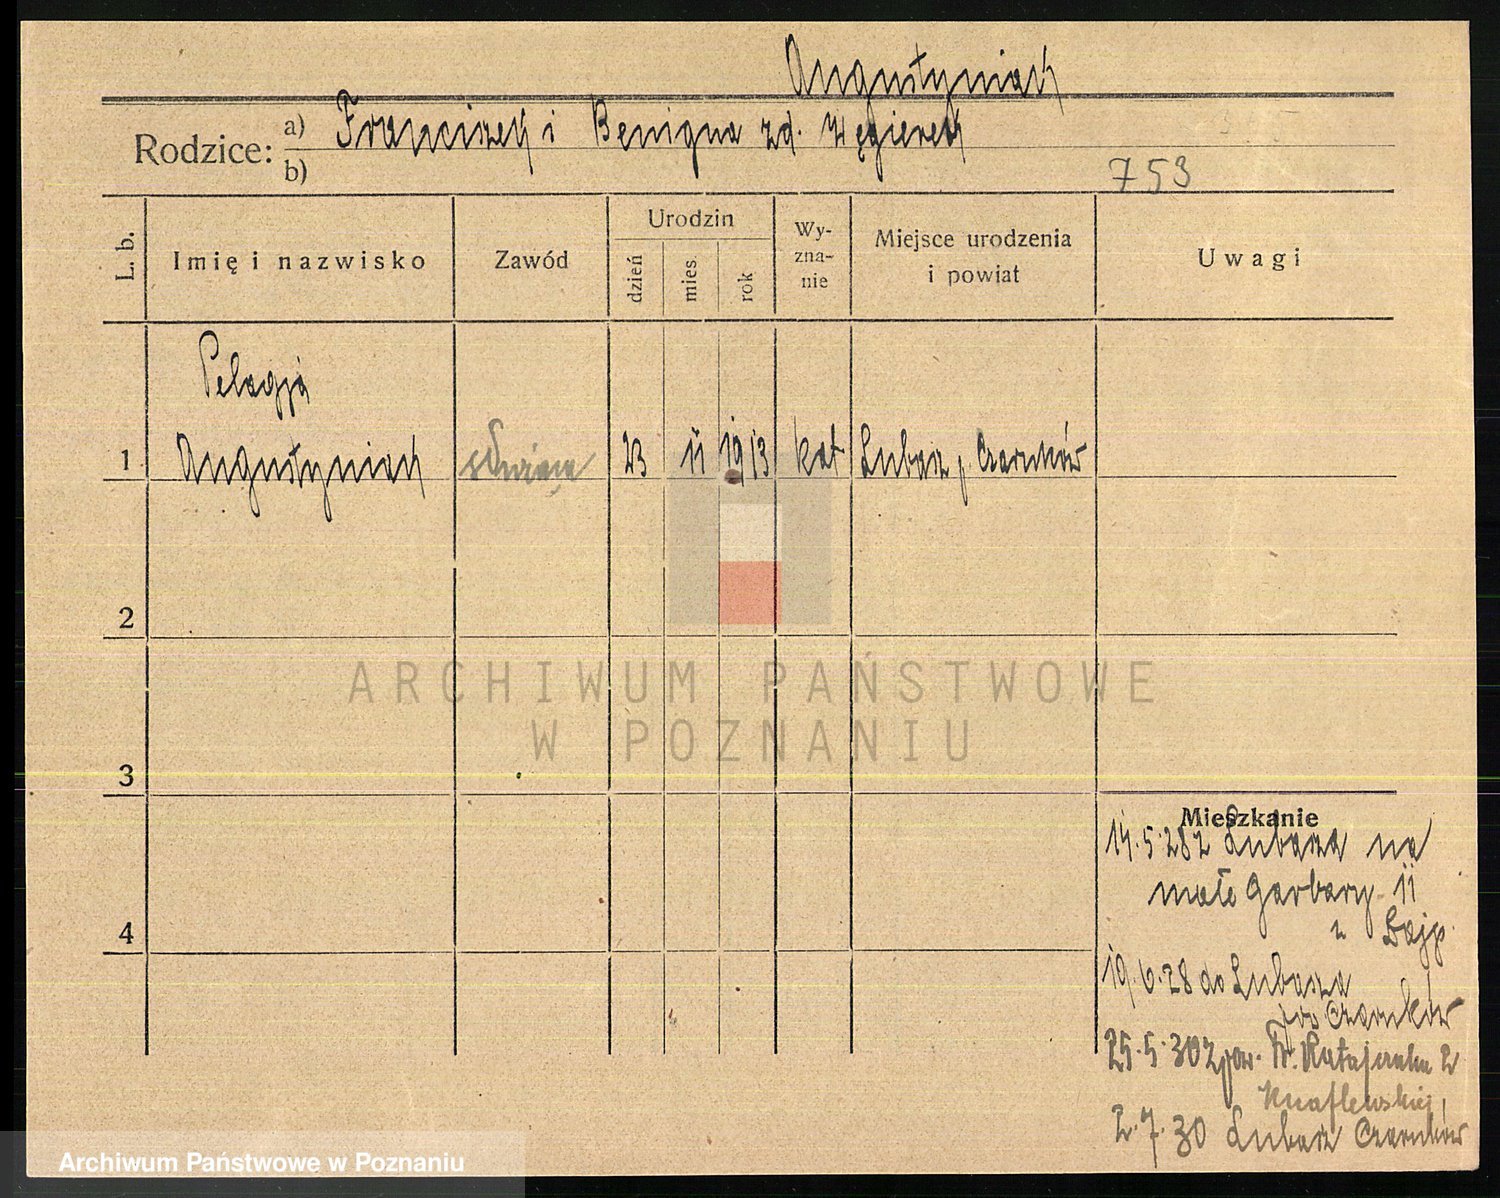 Augustyniak
Rodzice: a) Franciszek i Benigna zd. Węgierek
b)
753
L. b.
Imię i nazwisko
Zawód
Urodzin
dzień
mies.
rok
Wy-
zna-
nie
Miejsce urodzenia
i powiat
Uwagi
Pelagja
1 Augustyniak 23 11 1913 kat Lubasz p. Czarnków
2
3
4
ARCHIWUM PAŃSTWOWE
W POZNANIU
Mieszkanie
14.5.28 z Lubasza na
małe Garbary 11
u
19.6.28 do Lubasza
pow Czarnków
25.5.30 z pow. Fr. Ratajczaka 2
Knaflewskiej
2.7.30 Lubasz Czarnków
Archiwum Państwowe w Poznaniu